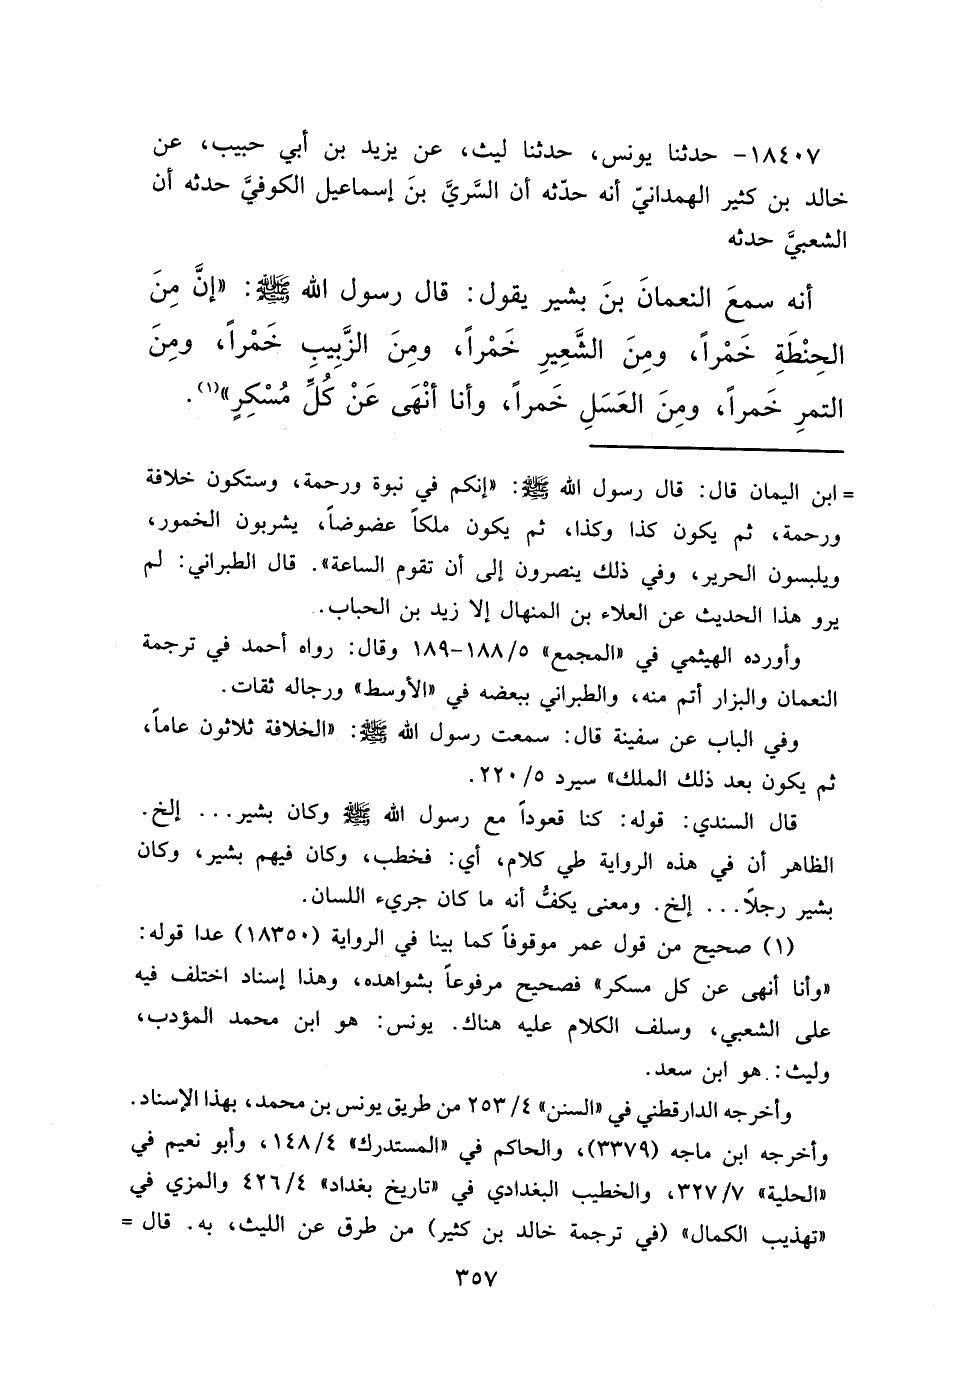 ١٨٤٠٧- حدثنا يونس، حدثنا ليث، عن يزيد بن أبي حبيب، عن
خالد بن كثير الهمدانيّ أنه حدّثه أن السَّريَّ بنَ إسماعيل الكوفيَّ حدثه أن
الشعبيَّ حدثه
أنه سمعَ النعمانَ بنَ بشير يقول: قال رسول الله ﷺ: «إنَّ مِنَ
الحِنْطَةِ خَمْراً، ومِنَ الشَّعِيرِ خَمْراً، ومِنَ الزَّبِيبِ خَمْراً، ومِنَ
التمرِ خَمراً، ومِنَ العَسَلِ خَمراً، وأنا أنْهَى عَنْ كُلِّ مُسْكِرٍ»(١).
= ابن اليمان قال: قال رسول الله ﷺ: «إنكم في نبوة ورحمة، وستكون خلافة
ورحمة، ثم يكون كذا وكذا، ثم يكون ملكاً عضوضاً، يشربون الخمور،
ويلبسون الحرير، وفي ذلك ينصرون إلى أن تقوم الساعة». قال الطبراني: لم
يرو هذا الحديث عن العلاء بن المنهال إلا زيد بن الحباب.
وأورده الهيثمي في «المجمع» ١٨٨/٥-١٨٩ وقال: رواه أحمد في ترجمة
النعمان والبزار أتم منه، والطبراني ببعضه في «الأوسط» ورجاله ثقات.
وفي الباب عن سفينة قال: سمعت رسول الله ﷺ: «الخلافة ثلاثون عاماً،
ثم يكون بعد ذلك الملك» سيرد ٢٢٠/٥.
قال السندي: قوله: كنا قعوداً مع رسول الله ﷺ وكان بشير... إلخ.
الظاهر أن في هذه الرواية طي كلام، أي: فخطب، وكان فيهم بشير، وكان
بشير رجلاً... إلخ. ومعنى يكفُّ أنه ما كان جريء اللسان.
(١) صحيح من قول عمر موقوفاً كما بينا في الرواية (١٨٣٥٠) عدا قوله:
«وأنا أنهى عن كل مسكر» فصحيح مرفوعاً بشواهده، وهذا إسناد اختلف فيه
على الشعبي، وسلف الكلام عليه هناك. يونس: هو ابن محمد المؤدب،
وليث: هو ابن سعد.
وأخرجه الدارقطني في «السنن» ٢٥٣/٤ من طريق يونس بن محمد، بهذا الإسناد.
وأخرجه ابن ماجه (٣٣٧٩)، والحاكم في «المستدرك» ١٤٨/٤، وأبو نعيم في
«الحلية» ٣٢٧/٧، والخطيب البغدادي في «تاريخ بغداد» ٤٢٦/٤ والمزي في
«تهذيب الكمال» (في ترجمة خالد بن كثير) من طرق عن الليث، به. قال =
٣٥٧